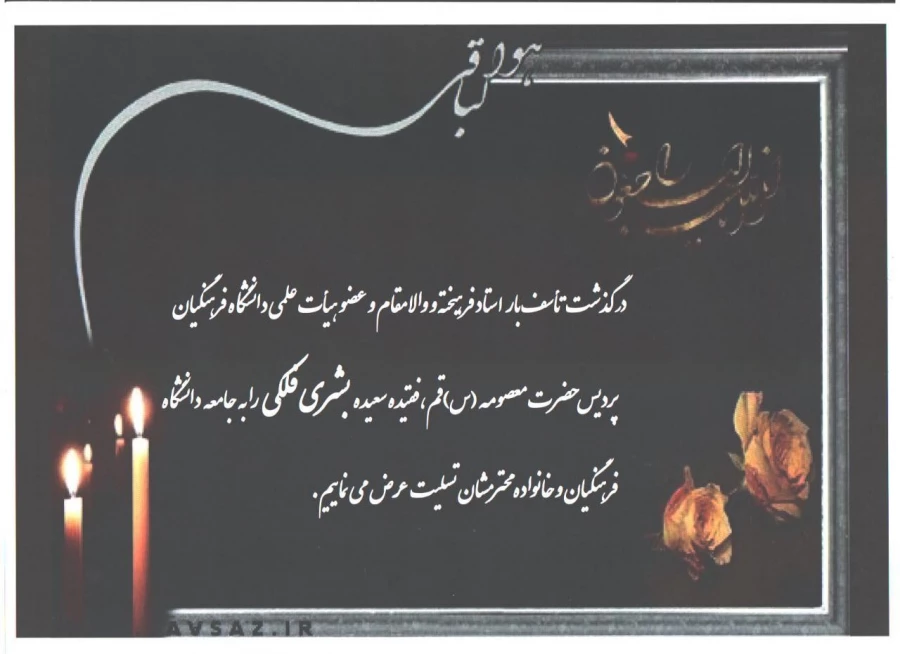 هوالباقی
انا لله و انا الیه راجعون
درگذشت تأسف بار استاد فرهیخته و والامقام و عضو هیأت علمی دانشگاه فرهنگیان
پردیس حضرت معصومه (س) قم ، فقیده سعیده بشری فلکی را به جامعه دانشگاه
فرهنگیان و خانواده محترمشان تسلیت عرض می نماییم .
AVSAZ.IR